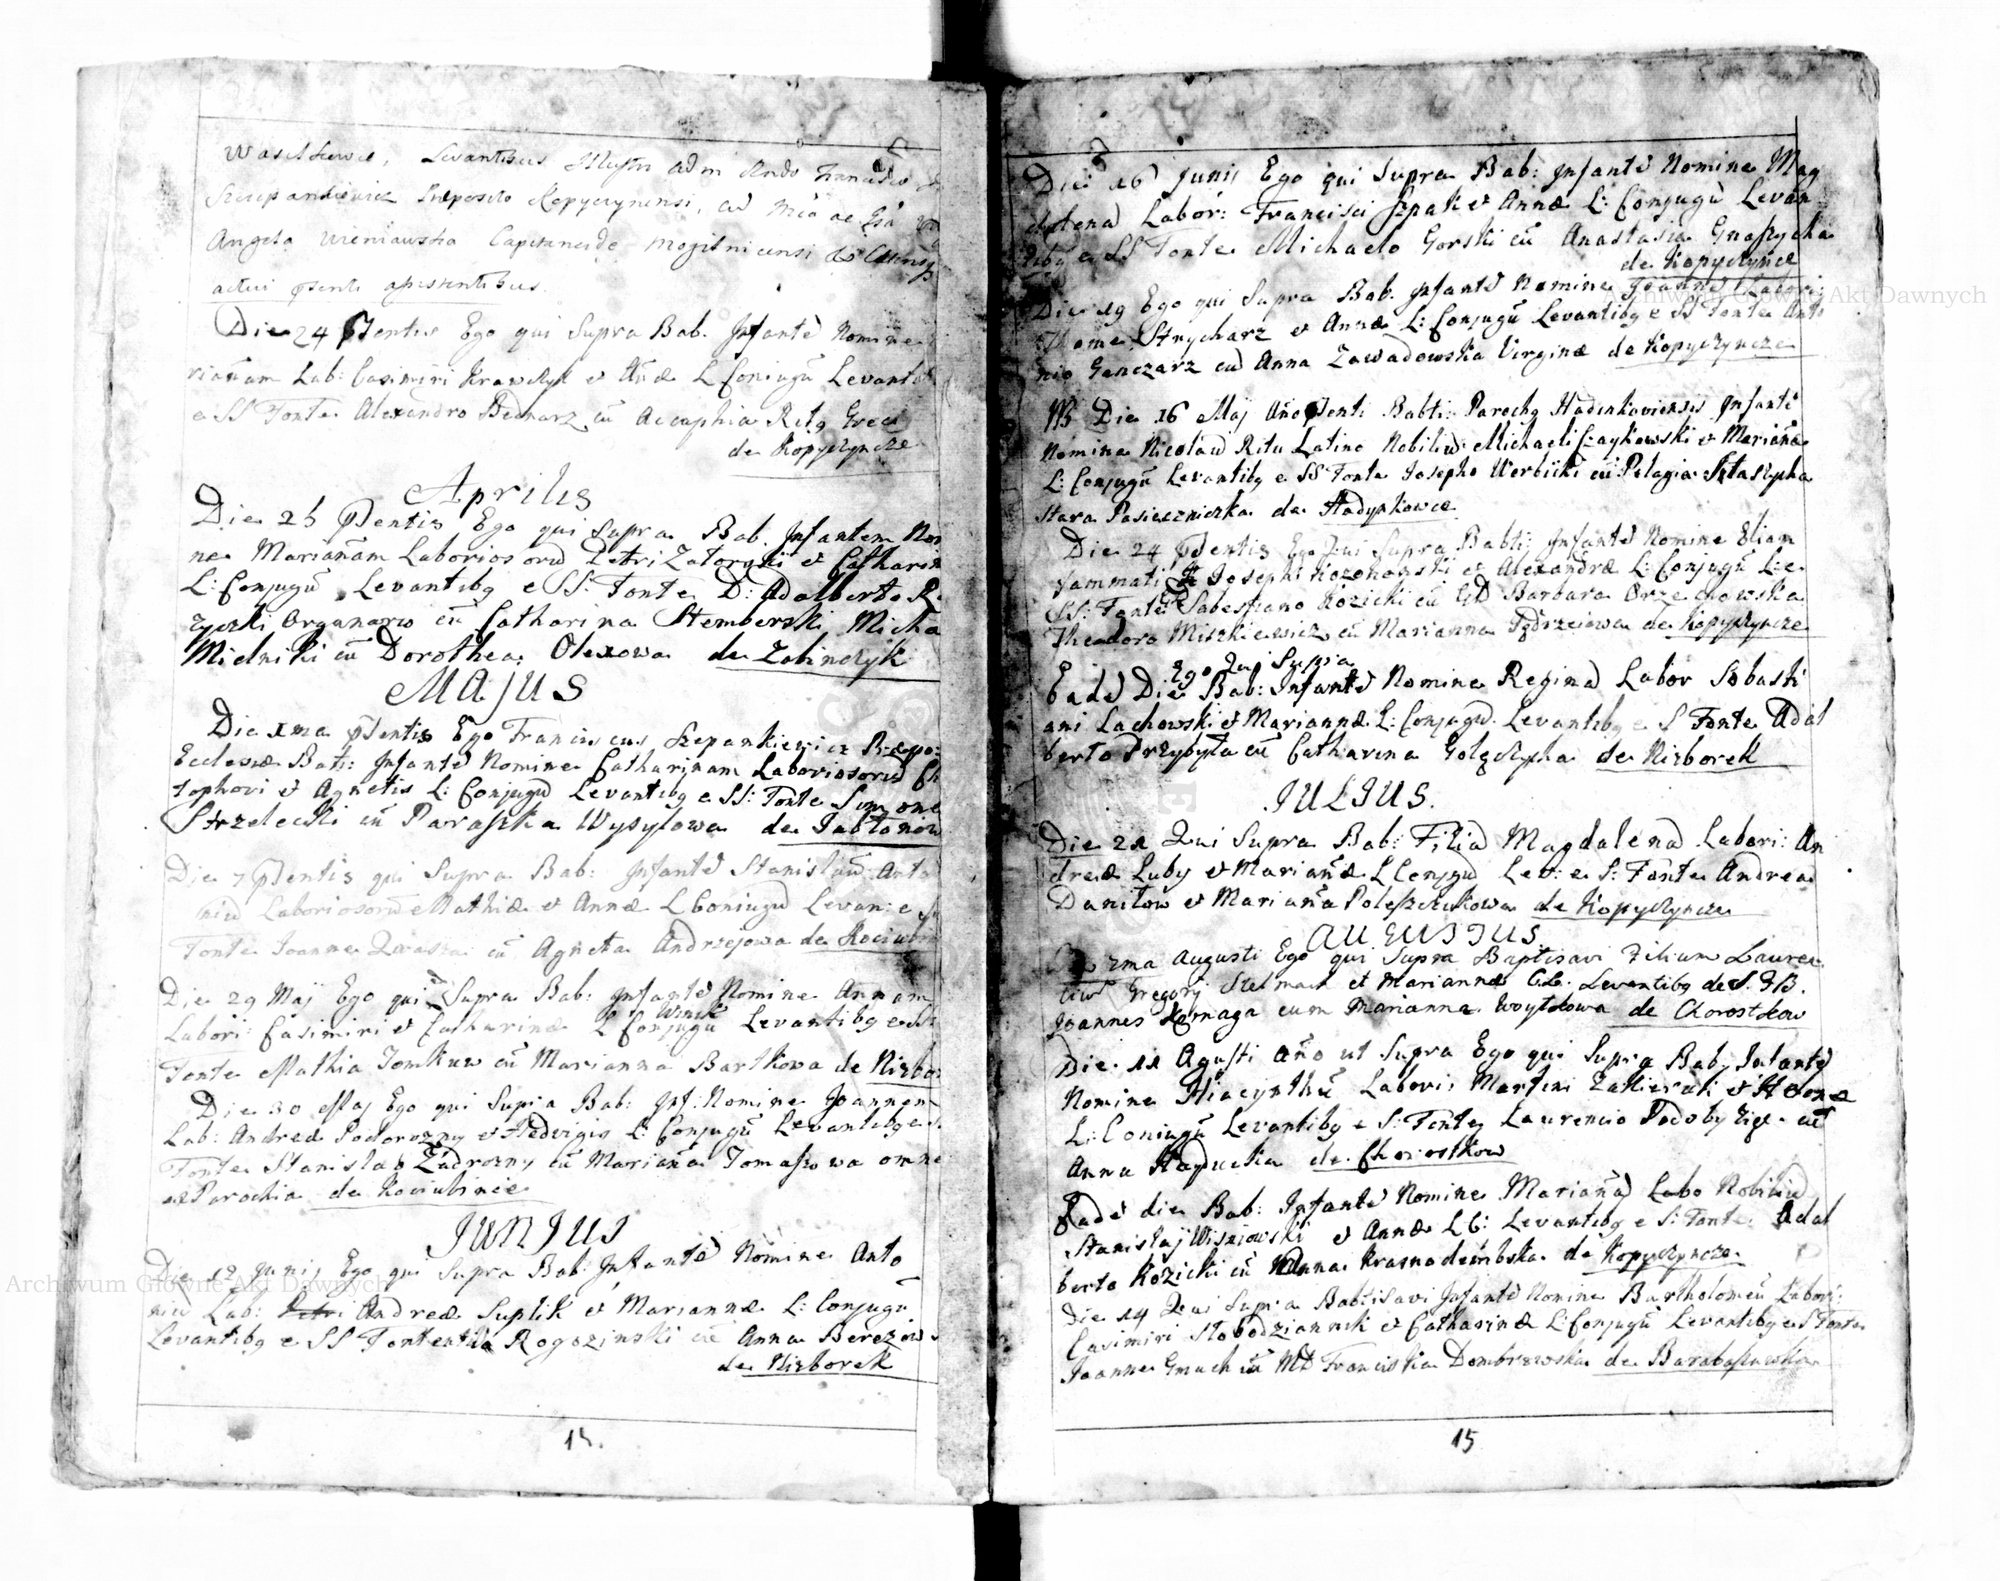 Wasilkowce, Levantibus Illustri adm Rndo Francisco
Szczepankiewicz Preposito Kopyczynensi, cu
Angela Wieniawska Capitaneide Mogilnicensi
actui psenti assistentibus.
Die 24 Psentis Ego qui Supra Bab. Infante Nomine
rianam Lab: Casimiri Krawczyk et Anæ L Conjugu Levantib
e SS Fonte Alexandro Bednarz cu Accaphia Ritq Greci
de Kopyczyncze
Aprilis
Die 25 Psentis Ego qui Supra Bab. Infantem Nomi
ne Marianam Laboriosoru Petri Zatorski et Catharin
L: Conjugu Levantibq e SS: Fonte D: Adalberto R
zycki Organario cu Catharina Stemberski Micha
Mielniki cu Dorothea Olexowa de Zabinczyk
MAJUS
Die 1ma Psentis Ego Franciscus Szepankiewicz Præpo:
Eclesiæ Bab: Infante Nomine Catharinam Laboriosoru Ch
tophori et Agnetis L: Conjugu Levantibq e SS: Fonte Symone
Strzelecki cu Paraszka Wysylowa de Jablonow
Die 7 Psentis qui Supra Bab: Infante Stanislau Anto
niu Laboriosoru Mathiæ et Annæ L Coniugu Levan: e
Fonte Joanne Kwasza cu Agneta Andrzejowa de Kociubin
Die 29 Maij Ego qui Supra Bab: Infante Nomine Annam
Labori: Casimiri et Catharinæ Winik L Conjugu Levantibq e SS
Fonte Mathia Tomkuw cu Marianna Bartkowa de Nizbo
Die 30 Maj Ego qui Supra Bab: Inf: Nomine Joannem
Lab: Andreæ Podorozny et Hedvigis L: Conjugu Levantibq e
Fonte Stanislao Zadrozny cu Mariana Tomaszowa omne
ex Parochia de Kociubince
JUNIUS
Die 12 Junij Ego qui Supra Bab: Infante Nomine Anto
niu Lab: Petri Andreæ Suplik et Mariannæ L: Conjugu
Levantibq e SS Fonte Rogozinski cu Anna Berezows
de Nizborek
15.
Die 16 Junij Ego qui Supra Bab: Infante Nomine Mag
dalena Labor: Francisci Szpak et Annæ L: Conjugu Levan
tibq e SS Fonte Michaelo Gorski cu Anastasia Gnaszycha
de Kopyczynce
Die 19 Ego qui Supra Bab. Infante Nomine Joanne Labori:
Thome Strycharz et Annæ L: Conjugu Levantibq e SS Fonte Anto
nio Ganczarz cu Anna Zawadowska Virginæ de Kopyczyncze
NB Die 16 Maij Ano Psenti Babti: Parochq Hadinkoviensis Infante
Nomine Nicolau Ritu Latino Nobiliu Michaeli Czaykowski et Mariañæ
L: Conjugu Levantibq e SS Fonte Josepho Werbicki cu Pelagia Staszycha
Stara Pasieczniczka de Hadynkowce
Die 24 Psentis Ego Qui Supra Babti: Infante Nomine Eliam
Fammati Josephi Kozohowski et Alexandræ L: Conjugu L: e
SS: Fonte Sabestiano Kozicki cu GD Barbara Orzechowska
Theodora Miszkiewicz cu Marianna Pedrzeiowa de Kopyczyncze
Eade Die Ego Qui Supra Bab: Infante Nomine Regina Labor Sobasti
ani Lachowski et Mariannæ L: Conjugu Levantibq e S Fonte Adal
berto Przybyla cu Catharina Golęczycha de Nizborek
JULIUS.
Die 21 Qui Supra Bab: Filia Magdalena Labori: An
dreæ Luby et Mariañæ L Conjgu Lev: e S: Fonte Andrea
Danilow et Mariaña Poleszczukowa de Kopyczyncze
AUGUSTUS
Die 2ma Augusti Ego qui Supra Baptisavi Filium Lauren
tiu Gregorij Stelmach et Mariannæ CL. Levantibq de S. FB.
Joannes Kornaga cum Marianna Woytkowa de Chorostkow
Die 11 Agusti Año ut Supra Ego qui Supra Bab: Infante
Nomine Hiacynthu Labori: Martini Zakierski et Helenæ
L: Coniugu Levantibq e S: Fonte Laurencio Podobyzige cu
Anna Hayducka de Chorostkow
Eade die Bab: Infante Nomine Mariaña Labo Nobiliu
Stanislaj Wisniowski et Annæ L C: Levantibq e S: Fonte Adal
berto Kozicki cu Anna Krasnodembska de Kopyczyncze
Die 14 Qui Supra Babtisavi Infante Nomine Bartholomeu Labori:
Casimiri Slobodziannik et Catharinæ L: Conjugu Levantibq e S Fonte
Joanne Gmuch cu MD Franciska Dombrzowska de Barabaszuwka
15
Archiwum Główne Akt Dawnych
Archiwum Główne Akt Dawnych